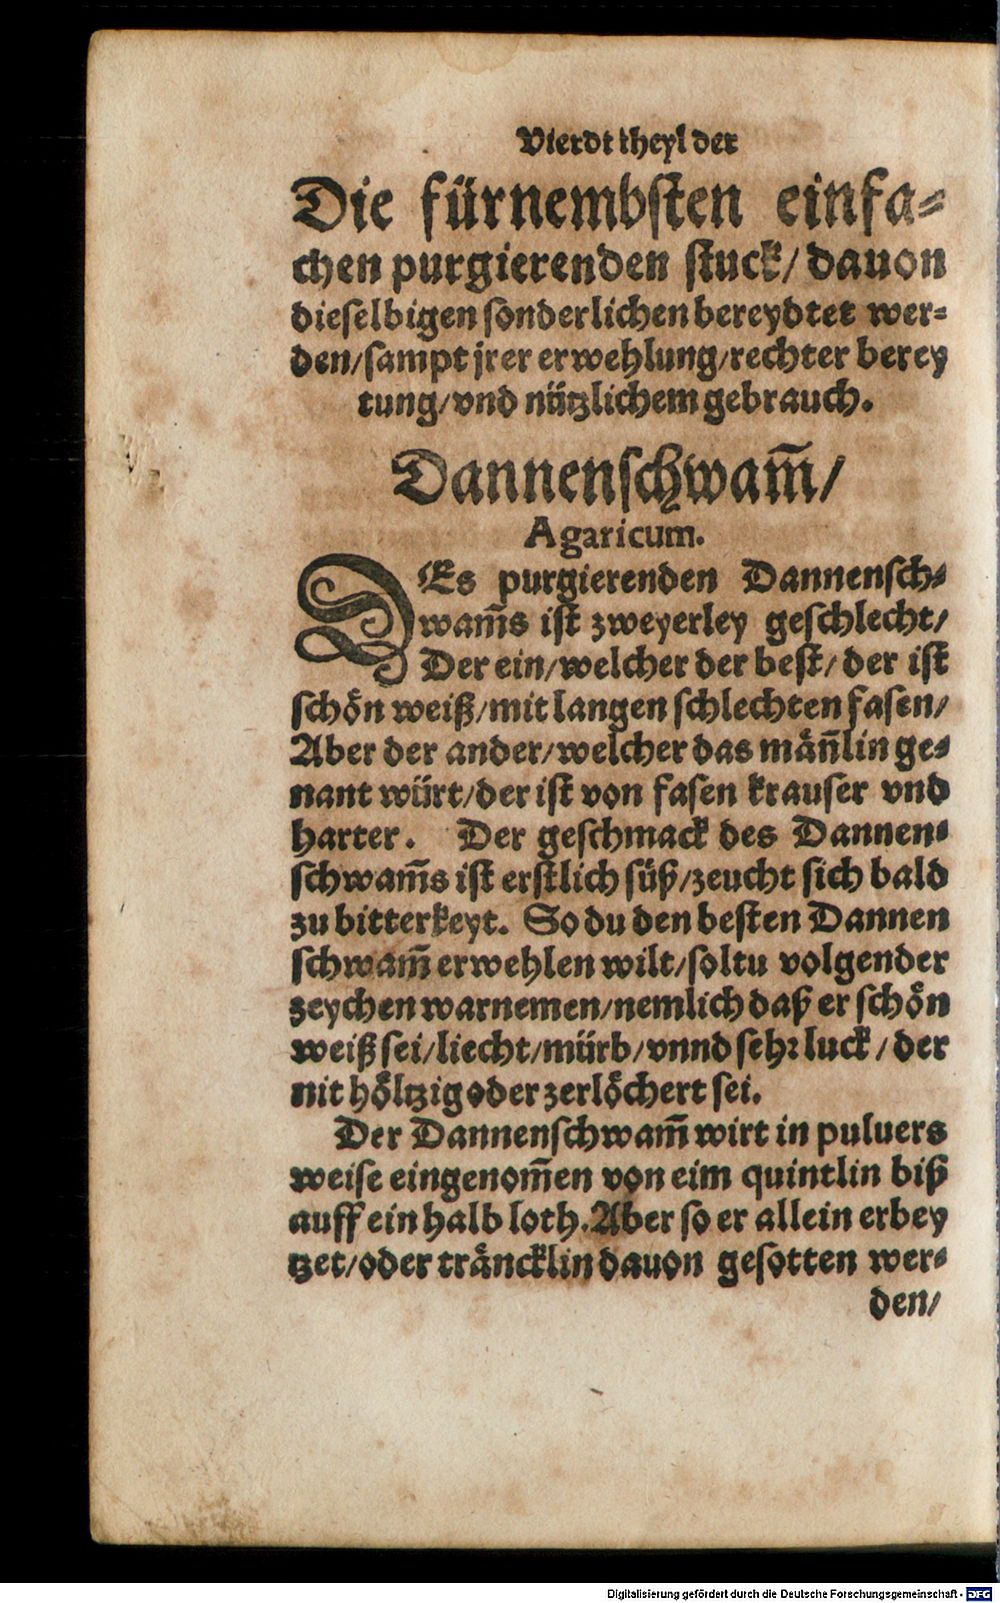 Vierdt theyl der
Die fürnembsten einfa⸗
chen purgierenden stuck/ dauon
dieselbigen sonderlichen bereydtet wer⸗
den/sampt jrer erwehlung/rechter berey
tung/vnd nützlichem gebrauch.
Dannenschwam̃/
Agaricum.
DEs purgierenden Dannensch⸗
wam̃s ist zweyerley geschlecht/
Der ein/welcher der best/ der ist
schoͤn weiß/mit langen schlechten fasen/
Aber der ander/welcher das maͤñlin ge⸗
nant würt/der ist von fasen krauser vnd
harter. Der geschmack des Dannen⸗
schwam̃s ist erstlich süß/zeucht sich bald
zu bitterkeyt. So du den besten Dannen
schwam̃ erwehlen wilt/soltu volgender
zeychen warnemen/nemlich daß er schoͤn
weiß sei/liecht/mürb/vnnd sehr luck/ der
nit hoͤltzig oder zerloͤchert sei.
Der Dannenschwam̃ wirt in puluers
weise eingenom̃en von eim quintlin biß
auff ein halb loth. Aber so er allein erbey
tzet/oder traͤncklin dauon gesotten wer⸗
den/
Digitalisierung gefördert durch die Deutsche Forschungsgemeinschaft - DFG